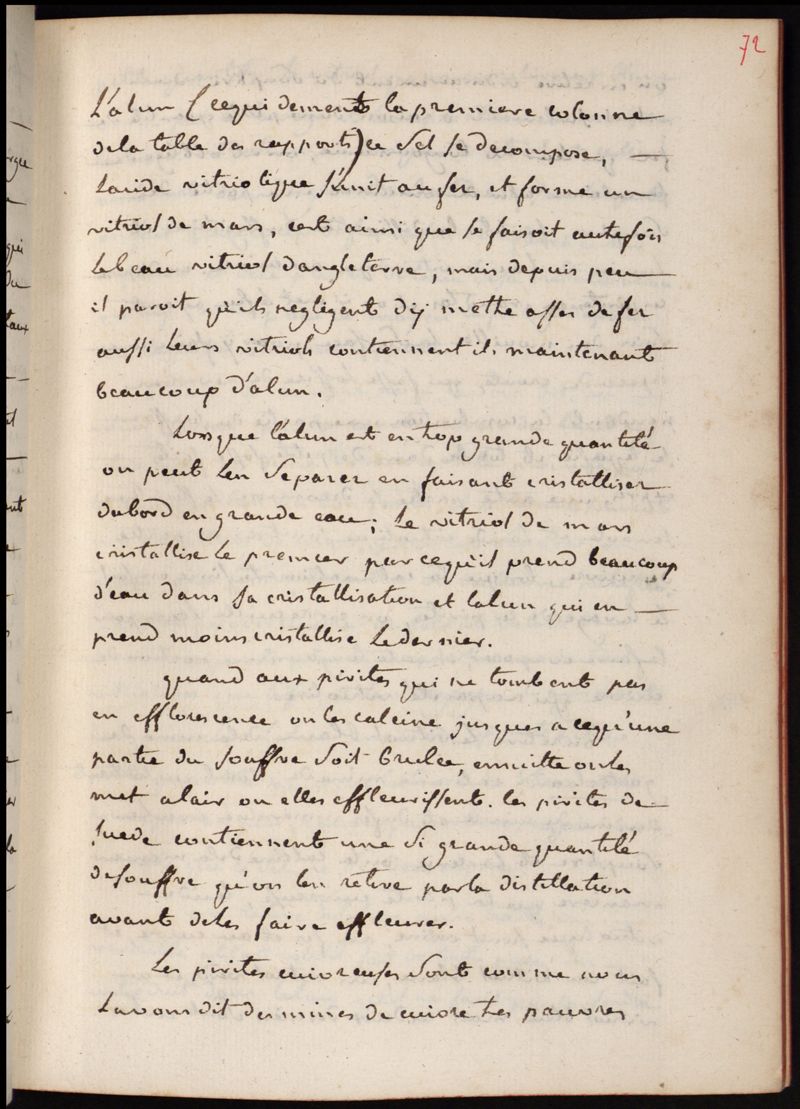 72
L'alun (cequi dement la premiere colonne
dela table des rapports) ce sel se decompose, —
lacide vitriolique s'unit au fer, et forme un
vitriol de mars, cest ainsi que se faisoit autefois
le beau vitriol dangleterre, mais depuis peu
il paroit qu'ils negligent dij mettre asses de fer
aussi leurs vitriols contiennent ils maintenant
beaucoup d'alun.
Lorsque l'alun est en trop grande quantité
on peut len separer en faisant cristalliser
dabord en grande eau; le vitriol de mars
cristallise le premier parcequ'il prend beaucoup
d'eau dans sa cristallisation et lalun qui en —
prend moins cristallise le dernier.
quand aux pirites qui ne tombent pas
en efflorescence on les calcine jusques a cequ'une
partie du souffre soit brulee, ensuitte on les
met alair ou elles effleurissent. les pirites de
suede contiennent une si grande quantité
de souffre qu'on len retire par la distillation
avant deles faire effleurer.
Les pirites cuivreuses sont comme nous
lavons dit des mines de cuivre tres pauvres